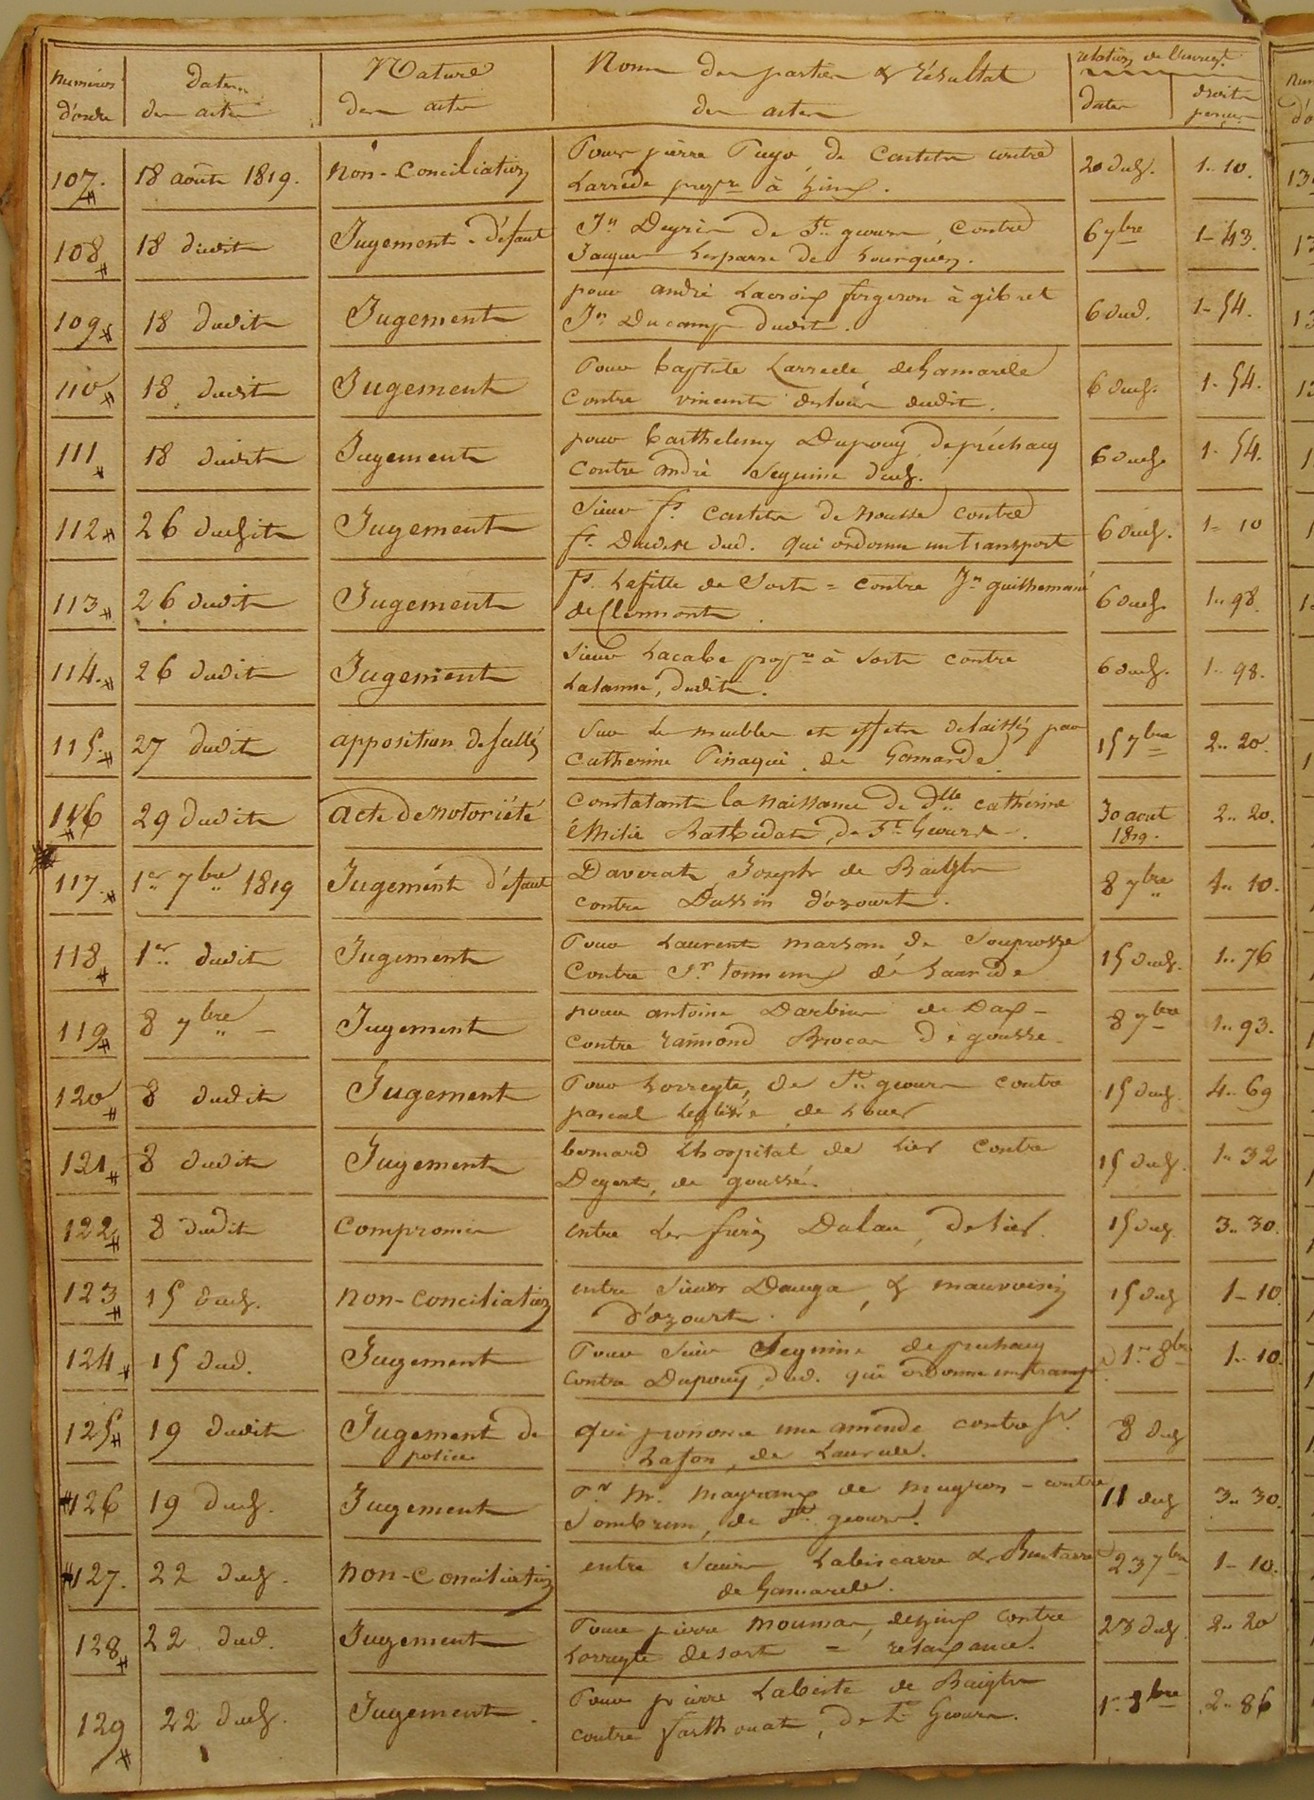 numéros d'ordre | dates des actes | Nature des actes | Noms des parties & résultat des actes | relation de l'enregt. dates | droits perçus
107. | 18 août 1819. | non-Conciliation | Pour pierre Puyo, de Castets contre | 20 dudt. | 1-10.
Larrède propre à hinx.
108 | 18 dudit | Jugement-défaut | Jn Deyris de St. geours, contre | 6 7bre | 1-43.
Jacques Lesparre de Lourquen.
109 | 18 dudit | Jugement | pour andré Lacroix forgeron à gibret | 6 dud. | 1-54.
Jn Ducamp dudit.
110 | 18 dudit | Jugement | Pour baptiste Larrède, de gamarde | 6 dudt. | 1-54.
Contre vincent dudit.
111 | 18 dudit | Jugement | pour barthelemy Dupouy, de préchacq | 6 dudt. | 1-54.
Contre andré Seguine dudt.
112 | 26 dudit | Jugement | Sieur fs. Castets de nousse contre | 6 dudt. | 1-10
ft. dud. qui ordonne un transport
113 | 26 dudit | Jugement | fs. Lafitte de Sort = contre Jn guilhemané | 6 dudt. | 1..98.
de Clermont.
114. | 26 dudit | Jugement | Sieur Lacabe propre à Sort contre | 6 dudt. | 1..98.
Lalanne, dudit.
115. | 27 dudit | apposition de scellés | Sur les meubles et effets delaissés par | 15 7bre | 2..20.
Catherine Pinaqui de Gamarde.
116 | 29 dudit | acte de notoriété | Constatant la naissance de dlle cathérine | 30 aout 1819. | 2..20.
émilie Batbedat, de St. Geours.
117. | 1er 7bre 1819 | Jugement défaut | Daverat Joseph de Baigts | 8 7bre | 1..10.
contre Dussin d'ozourt.
118 | 1er dudit | Jugement | Pour Laurent marsan de Souprosse | 15 dudt. | 1..76
Contre Sr de Laurède
119 | 8 7bre | Jugement | pour antoine Darbins de Dax | 8 7bre | 1..93.
contre raimond Brocas de gousse
120 | 8 dudit | Jugement | Pour Lorreyte, de St. geours contre | 15 dudt. | 4..69
pascal Leglise, de Louer
121 | 8 dudit | Jugement | bernard Lhospital de Lier contre | 15 dudt. | 1..32
Degert, de gousse.
122 | 8 dudit | compromis | entre les frères Dulau, de Lier. | 15 dudt. | 3..30.
123 | 15 dudt. | non-conciliation | entre Sieurs Dauga, & mauvoisin | 15 dudt | 1-10
d'ozourt.
124 | 15 dud. | Jugement | Pour Sieur Seguine de préchacq | 1er 8bre | 1..10.
contre Dupouy, dud. qui ordonne un transp
125 | 19 dudit | Jugement de police | qui prononce une amende contre fs. | 8 dudt
Lafon, de Laurède.
126 | 19 dudt. | Jugement | Pr Mr. mayranx de mugron - contre | 11 dudt | 3..30.
Sombrun, de St. geours.
127. | 22 dudt. | non-conciliation | entre Sieurs Labiscarre & Bustarret | 23 7bre | 1-10.
de Gamarde.
128 | 22 dud. | Jugement | Pour pierre moumas, de hinx contre | 23 dudt. | 2..20
Lorreyte de sort =
129 | 22 dudt. | Jugement | Pour pierre Labeste de Baigts | 1er 8bre | 2..86
contre farthouat, de St. Geours.